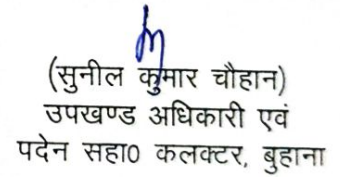 (सुनील कुमार चौहान)
उपखण्ड अधिकारी एवं
पदेन सहा0 कलक्टर, बुहाना